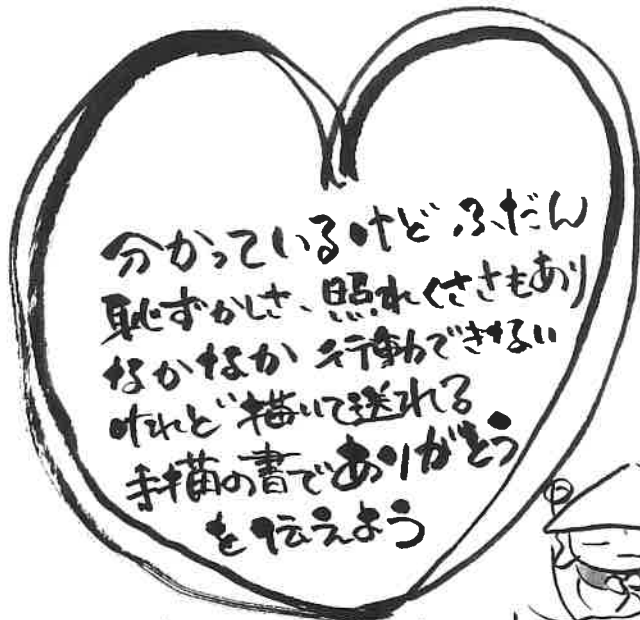 分かっているけど ふだん
恥ずかしさ、照れくささもあり
なかなか 行動できない
けれど 描いて送れる
手描の書でありがとう
を伝えよう